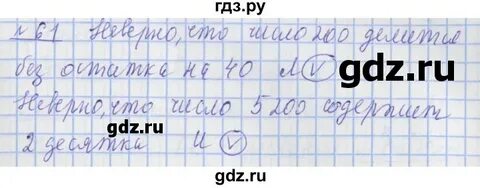 гдз.ру
№61 Неверно, что число 200 делится
gdz.ru
без остатка на 40 Л V
Неверно, что число 5200 содержит
2 десятка И V
gdz.ru
gdz.ru